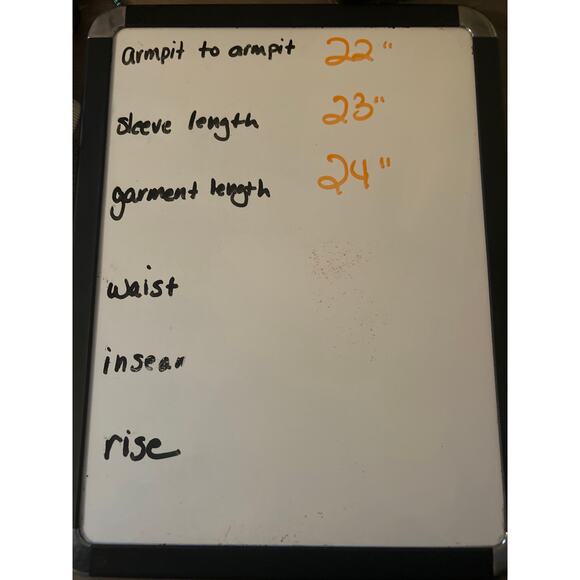 armpit to armpit 22"
sleeve length 23"
garment length 24"
waist
inseam
rise